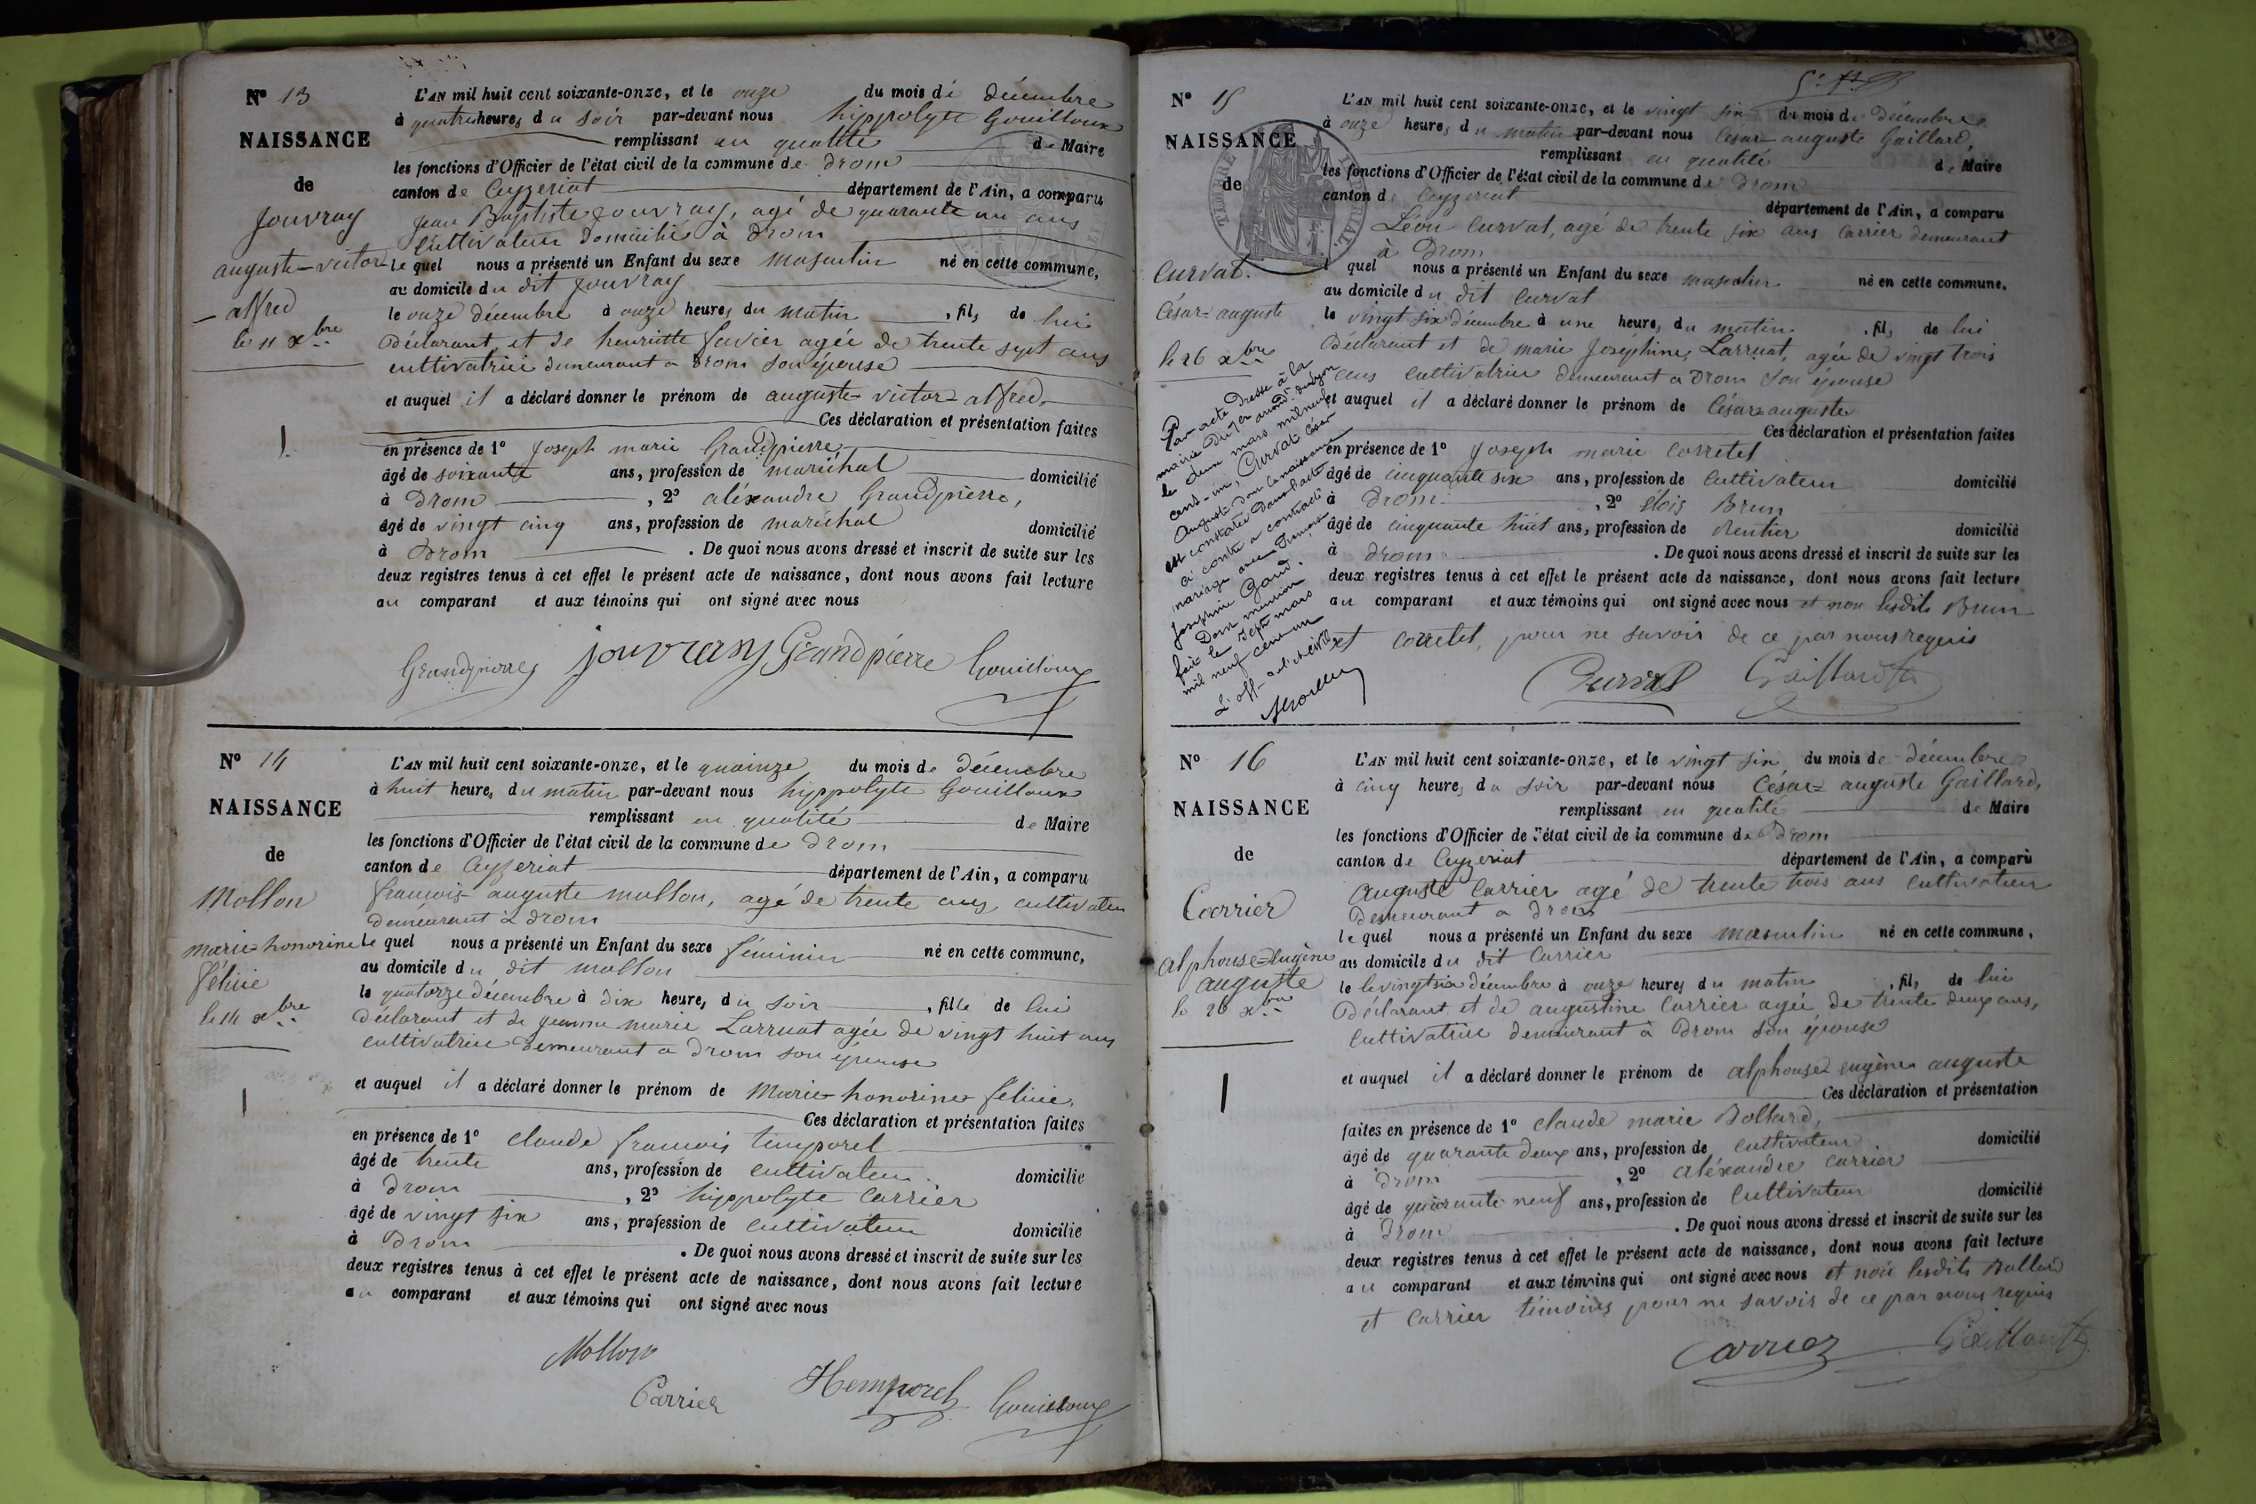 N° 13
NAISSANCE
de
Jouvray
auguste-victor
alfred
le 11 xbre
L'AN mil huit cent soixante-onze, et le onze du mois de décembre
à quatre heures du soir par-devant nous hippolyte Gouilloux
remplissant en qualité de Maire
les fonctions d'Officier de l'état civil de la commune de Drom
canton de Ceyzeriat département de l'Ain, a comparu
Jean Baptiste Jouvray, agé de quarante un ans
Cultivateur domicilié à Drom
le quel nous a présenté un Enfant du sexe masculin né en cette commune,
au domicile du dit Jouvray
le onze décembre à onze heures du matin, fils de lui
Déclarant et de henriette favier agée de trente sept ans
cultivatrice demeurant a Drom son épouse
et auquel il a déclaré donner le prénom de auguste victor alfred
Ces déclaration et présentation faites
en présence de 1° Joseph marie Grandpierre,
âgé de soixante ans, profession de maréchal domicilié
à Drom, 2° aléxandre Grandpierre,
âgé de vingt cinq ans, profession de maréchal domicilié
à Drom. De quoi nous avons dressé et inscrit de suite sur les
deux registres tenus à cet effet le présent acte de naissance, dont nous avons fait lecture
au comparant et aux témoins qui ont signé avec nous
Grandpierre jouvray Grandpierre Gouilloux
N° 14
NAISSANCE
de
Mollon
marie honorine
félicie
le 14 xbre
L'AN mil huit cent soixante-onze, et le quainze du mois de décembre
à huit heures du matin par-devant nous hippolyte Gouilloux
remplissant en qualité de Maire
les fonctions d'Officier de l'état civil de la commune de Drom
canton de Ceyzeriat département de l'Ain, a comparu
françois auguste mollon, agé de trente ans, cultivateur
demeurant à Drom
le quel nous a présenté un Enfant du sexe féminin né en cette commune,
au domicile du dit mollon
le quatorze décembre à dix heures du soir, fille de lui
déclarant et de jeanne marie Larruat agée de vingt huit ans
cultivatrice demeurant a Drom son épouse
et auquel il a déclaré donner le prénom de Marie honorine félicie,
Ces déclaration et présentation faites
en présence de 1° claude françois temporel
âgé de trente ans, profession de cultivateur domicilié
à Drom, 2° hippolyte Carrier
âgé de vingt six ans, profession de cultivateur domicilié
à Drom. De quoi nous avons dressé et inscrit de suite sur les
deux registres tenus à cet effet le présent acte de naissance, dont nous avons fait lecture
au comparant et aux témoins qui ont signé avec nous
Mollon
Carrier Gouilloux
N° 15
NAISSANCE
de
Curvat.
César-auguste
le 26 xbre
Par acte dressé à la
mairie du
le deux mars mil neuf
cent-un, Curvat César
Auguste dont la naissance
est constatée dans l'acte
ci contre a contracté
mariage avec
Joséphine
Dont mention
faite le sept mars
mil neuf cent un
L'off. de l'état civil
L'AN mil huit cent soixante-onze, et le vingt six du mois de décembre
à onze heures du matin par-devant nous César auguste Gaillard,
remplissant en qualité de Maire
les fonctions d'Officier de l'état civil de la commune de Drom
canton de Ceyzeriat département de l'Ain, a comparu
Léon Curvat, agé de trente six ans carrier demeurant
à Drom
quel nous a présenté un Enfant du sexe masculin né en cette commune,
au domicile du dit Curvat
le vingt six décembre à une heure, du matin, fils de lui
Déclarant et de marie Joséphine Larruat, agée de vingt trois
ans cultivatrice demeurant a Drom son épouse
et auquel il a déclaré donner le prénom de César auguste
Ces déclaration et présentation faites
en présence de 1° Joseph marie Corretel
âgé de cinquante six ans, profession de Cultivateur domicilié
à Drom, 2° elois Brun
âgé de cinquante huit ans, profession de rentier domicilié
à Drom. De quoi nous avons dressé et inscrit de suite sur les
deux registres tenus à cet effet le présent acte de naissance, dont nous avons fait lecture
au comparant et aux témoins qui ont signé avec nous et non lesdits Brun
et corretet, pour ne savoir de ce par nous requis
Curvat Gaillard
N° 16
NAISSANCE
de
Carrier
alphonse-Eugène
auguste
le 26 xbre
L'AN mil huit cent soixante-onze, et le vingt six du mois de décembre
à cinq heures du soir par-devant nous César auguste Gaillard,
remplissant en qualité de Maire
les fonctions d'Officier de l'état civil de la commune de Drom
canton de Ceyzeriat département de l'Ain, a comparu
auguste Carrier agé de trente trois ans cultivateur
Demeurant a Drom
le quel nous a présenté un Enfant du sexe masculin né en cette commune,
au domicile du dit Carrier
le le vingt six décembre à onze heures du matin, fils de lui
Déclarant et de augustine Carrier agée de trente deux ans,
Cultivatrice demeurant à Drom son épouse
et auquel il a déclaré donner le prénom de alphonse eugène auguste
Ces déclaration et présentation
faites en présence de 1° claude marie Bollard,
âgé de quarante deux ans, profession de cultivateur domicilié
à Drom, 2° aléxandre carrier
âgé de quarante neuf ans, profession de Cultivateur domicilié
à Drom. De quoi nous avons dressé et inscrit de suite sur les
deux registres tenus à cet effet le présent acte de naissance, dont nous avons fait lecture
au comparant et aux témoins qui ont signé avec nous et non lesdits Bollard
et Carrier témoins pour ne savoir de ce par nous requis
Carrier Gaillard